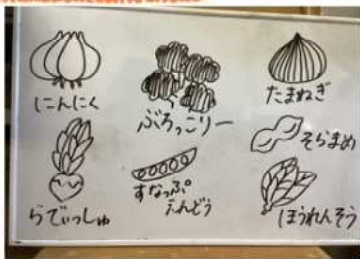 にんにく
ぶろっこりー
たまねぎ
そらまめ
らでぃっしゅ
すなっぷ
えんどう
ほうれんそう